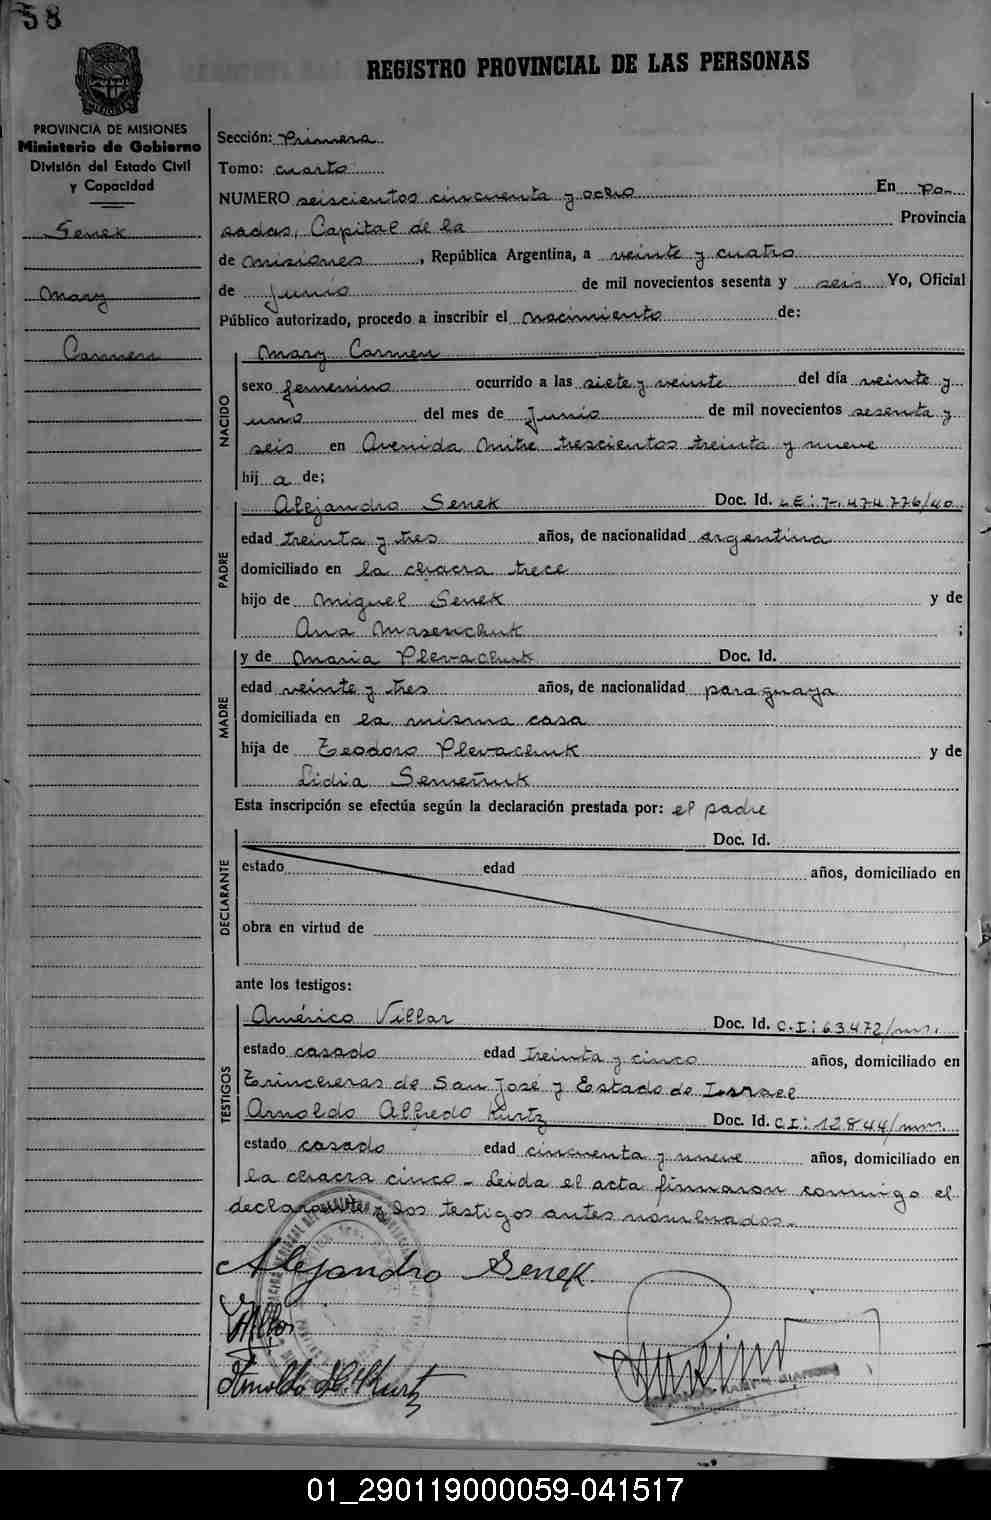 58
REGISTRO PROVINCIAL DE LAS PERSONAS
PROVINCIA DE MISIONES
Ministerio de Gobierno
División del Estado Civil
y Capacidad
Senek
Mary
Carmen
Sección: Primera
Tomo: cuarto
NUMERO seiscientos cincuenta y ocho En Po-
sadas, Capital de la Provincia
de Misiones, República Argentina, a veinte y cuatro
de Junio de mil novecientos sesenta y seis Yo, Oficial
Público autorizado, procedo a inscribir el nacimiento de:
NACIDO
Mary Carmen
sexo femenino ocurrido a las siete y veinte del día veinte y
uno del mes de Junio de mil novecientos sesenta y
seis en Avenida Mitre trescientos treinta y nueve
hij a de;
PADRE
Alejandro Senek Doc. Id. LE: 7.474.776/40
edad treinta y tres años, de nacionalidad argentina
domiciliado en la chacra trece
hijo de Miguel Senek y de
Ana Masenchuk ;
MADRE
y de Maria Plevachuk Doc. Id.
edad veinte y tres años, de nacionalidad paraguaya
domiciliada en la misma casa
hija de Teodoro Plevachuk y de
Lidia Semeñuk
Esta inscripción se efectúa según la declaración prestada por: el padre
DECLARANTE
Doc. Id.
estado edad años, domiciliado en
obra en virtud de
ante los testigos:
TESTIGOS
Américo Villar Doc. Id. C.I: 63.472/mns.
estado casado edad treinta y cinco años, domiciliado en
Trincheras de San José y Estado de Israel
Arnoldo Alfredo Kurtz Doc. Id. C.I: 12844/mns.
estado casado edad cincuenta y nueve años, domiciliado en
la chacra cinco - Leida el acta firmaron conmigo el
declarante y los testigos antes nombrados.-
Alejandro Senek
Arnoldo A. Kurtz
01_290119000059-041517